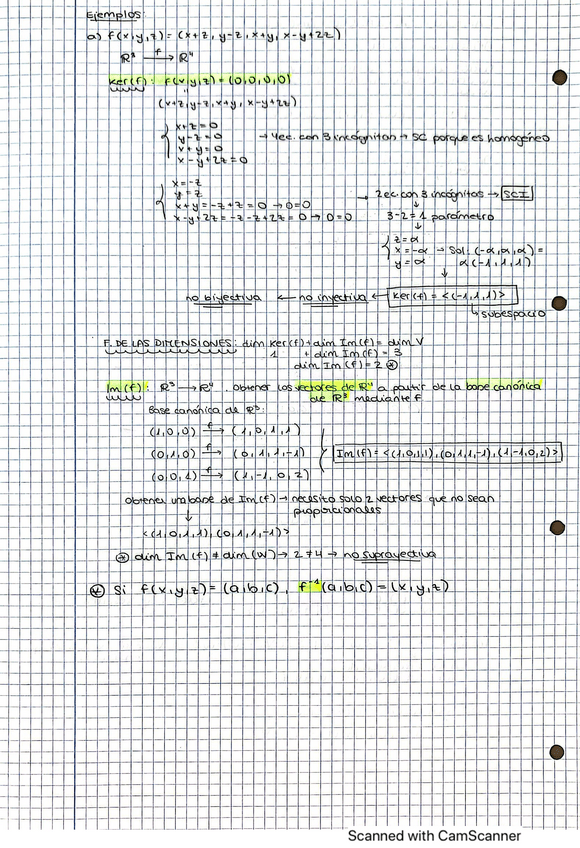 Ejemplos:
a) f(x,y,z) = (x+z, y-z, x+y, x-y+2z)
ℝ³ —f→ ℝ⁴
Ker(f): f(x,y,z) = (0,0,0,0)
"
(x+z, y-z, x+y, x-y+2z)
{ x+z=0
y-z=0
x+y=0
x-y+2z=0
→ 4ec. con 3 incógnitas → SC porque es homogéneo
{ x=-z
y=z
x+y = -z+z = 0 → 0=0
x-y+2z = -z-z+2z = 0 → 0=0
→ 2ec. con 3 incógnitas → SCI
↓
3-2=1 parámetro
↓
{ z=α
x=-α → Sol: (-α,α,α) =
y=α α(-1,1,1)
↓
no biyectiva ← no inyectiva ← Ker(f) = <(-1,1,1)>
↳ subespacio
F. DE LAS DIMENSIONES: dim Ker(f) + dim Im(f) = dim V
1 + dim Im(f) = 3
dim Im(f) = 2 ⊛
Im(f): ℝ³ → ℝ⁴. Obtener los vectores de ℝ⁴ a partir de la base canónica
de ℝ³ mediante f
Base canónica de ℝ³:
(1,0,0) —f→ (1,0,1,1)
(0,1,0) —f→ (0,1,1,-1)
(0,0,1) —f→ (1,-1,0,2)
Im(f) = <(1,0,1,1),(0,1,1,-1),(1,-1,0,2)>
Obtener una base de Im(f) → necesito solo 2 vectores que no sean
proporcionales
↓
<(1,0,1,1),(0,1,1,-1)>
⊛ dim Im(f) ≠ dim(W) → 2≠4 → no suprayectiva
⊛ Si f(x,y,z) = (a,b,c), f⁻¹(a,b,c) = (x,y,z)
Scanned with CamScanner